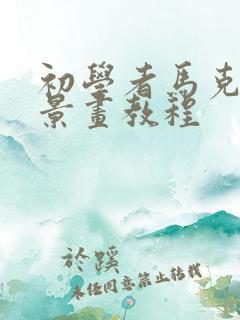 初學者馬克
景畫教程
於蹊
未经同意禁止转载